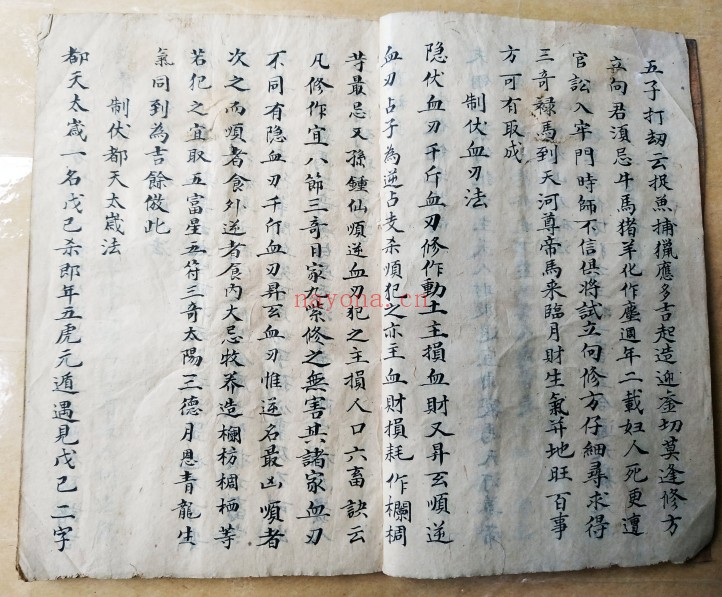 五子打刼云捉魚捕獵應多吉起造迎蚕切莫逢修方
立向君須忌牛馬猪羊化作塵週年二載妇人死更遭
官訟入牢門時師不信俱將試立向修方仔細尋求得
三奇禄馬到天河尊帝馬来臨月財生氣并地旺百事
方可有取成
制伏血刃法
隐伏血刃千斤血刃修作動土主損血財又昇玄順逆
血刃占子為逆占支杀順犯之亦主血財損耗作欄椆
苛最忌又孫鍾仙順逆血刃犯之主損人口六畜訣云
凡修作宜八節三奇日家九紫修之無害其諸家血刃
不同有隐血刃千斤血刃昇玄血刃惟逆名最凶順者
次之而順者食外逆者食内大忌牧养造欄枋椆栖等
若犯之宜取五富星五符三奇太陽三德月恩青龍生
氣同到為吉餘倣此
制伏都天太歲法
都天太歲一名戊己杀即年五虎元遁遇見戊己二字
nayona.cn